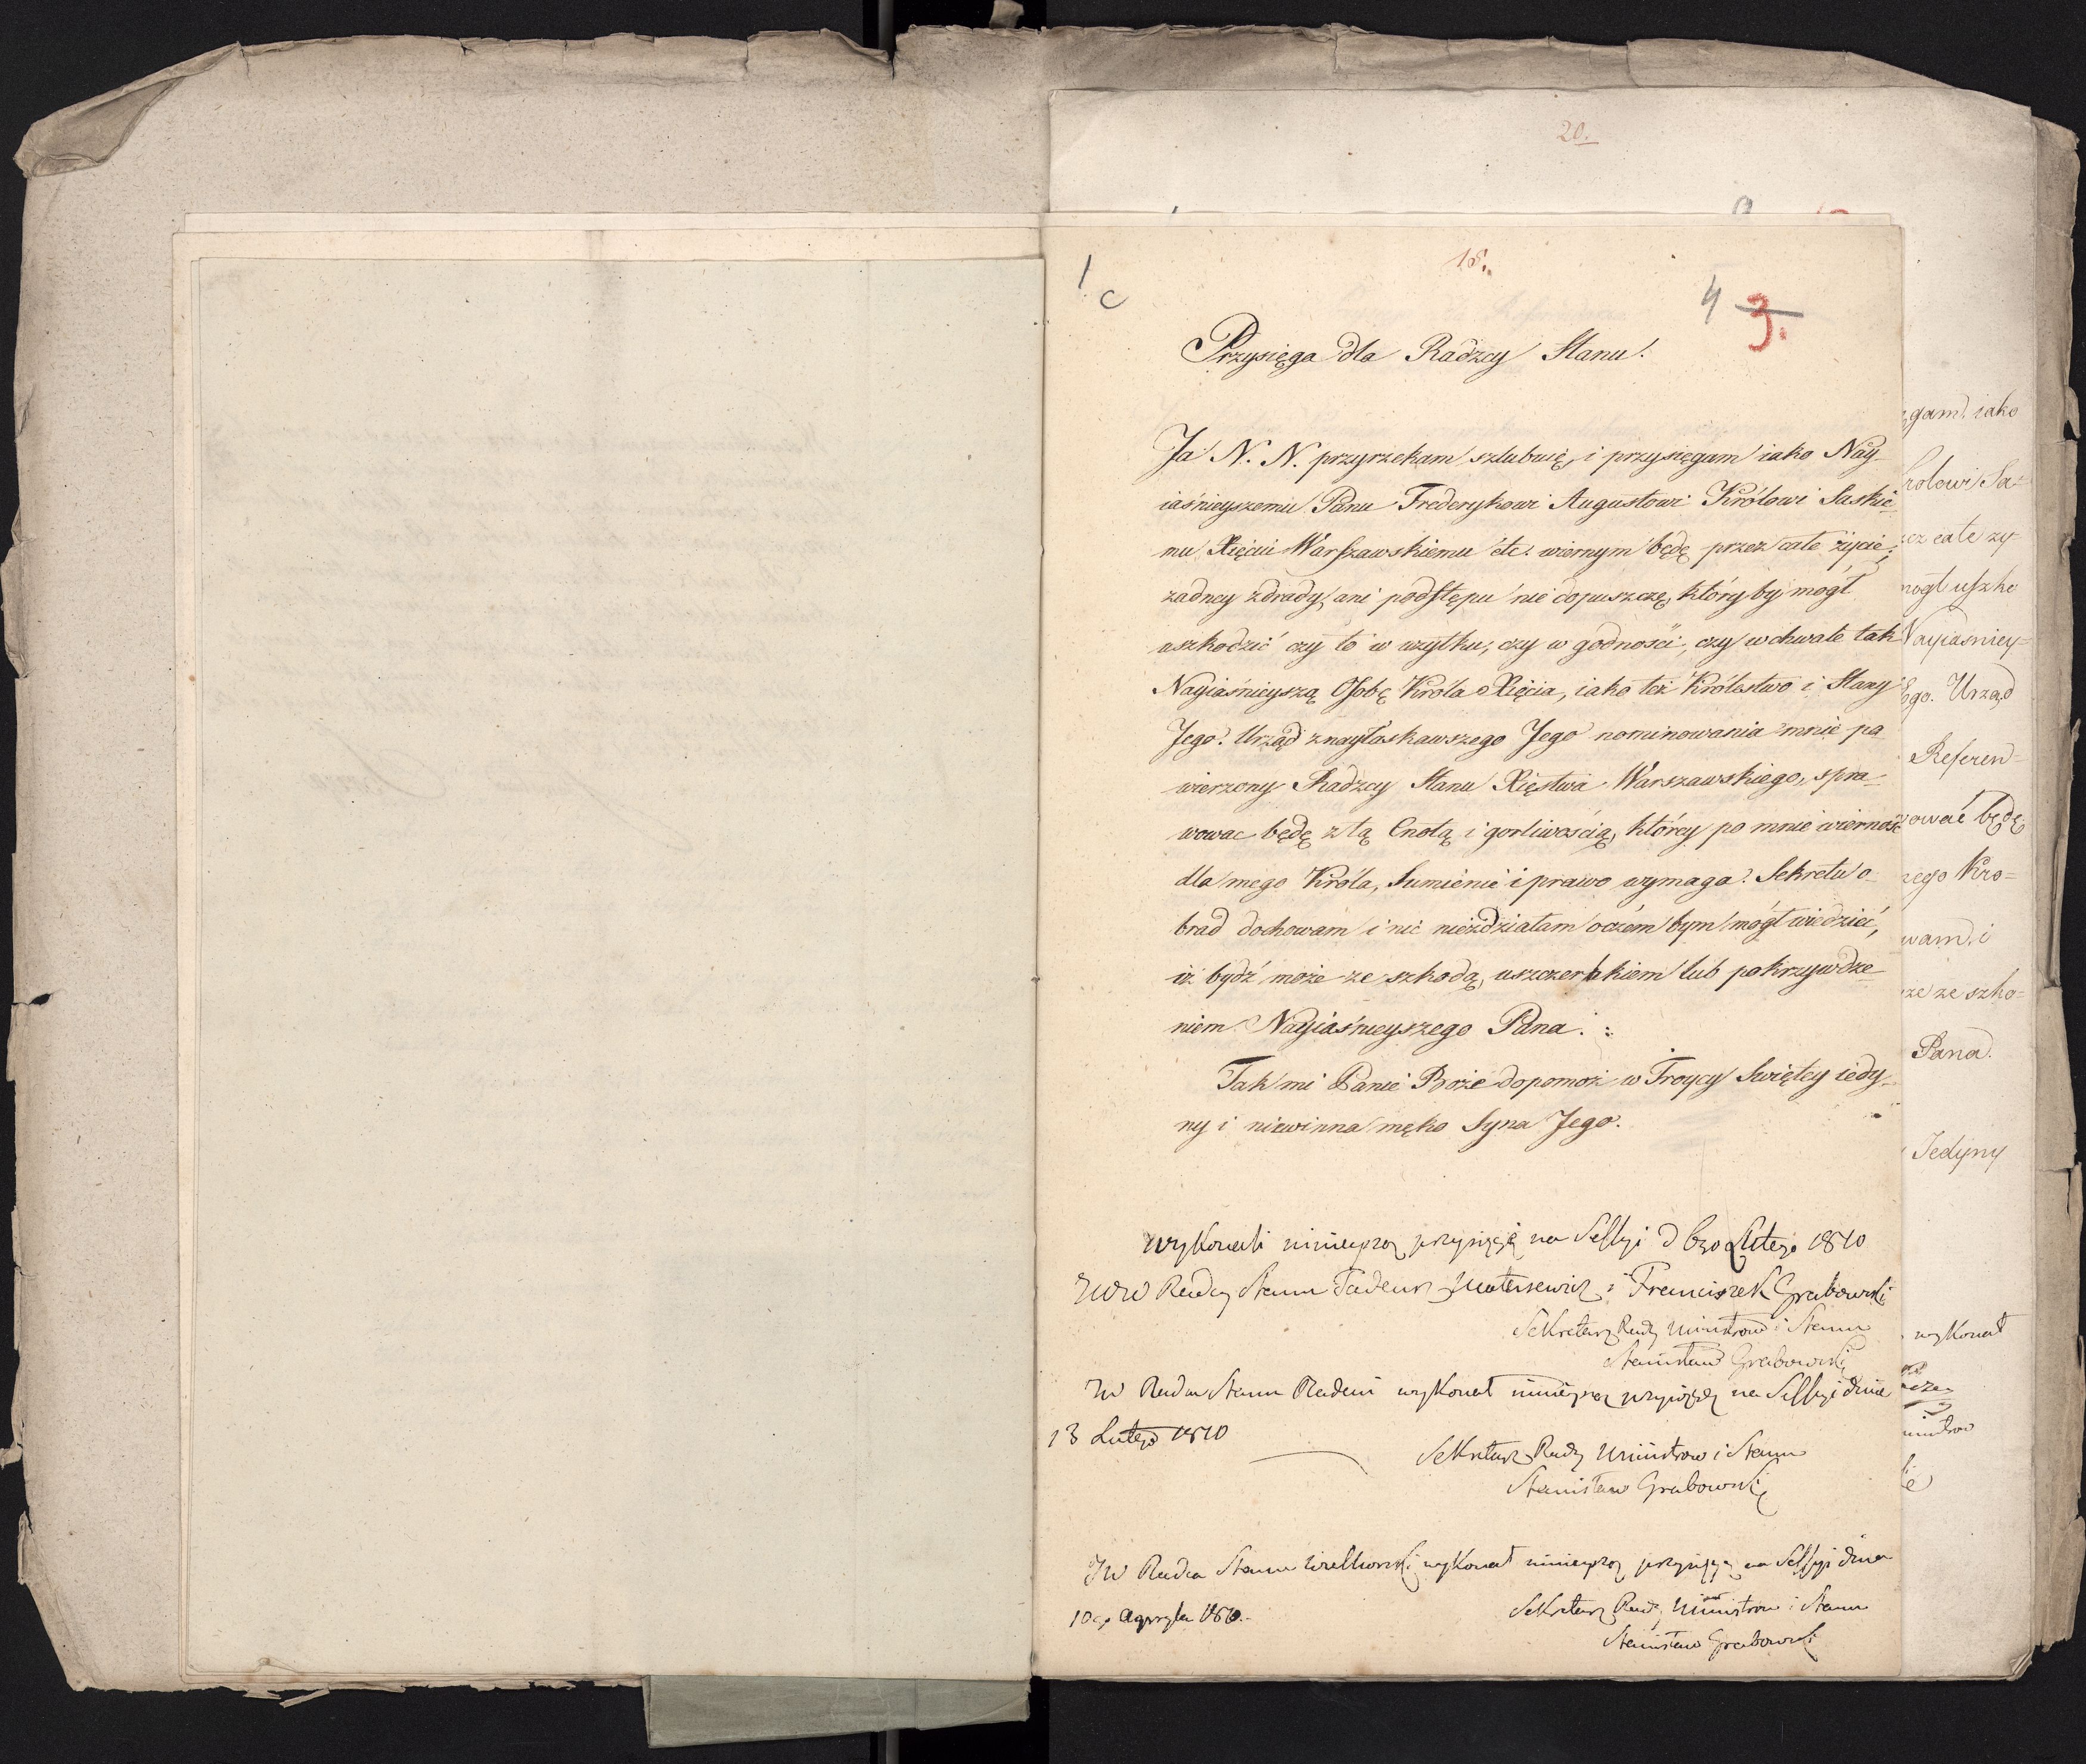 20.
18.
1 c
4 3.
Przysięga dla Radzcy Stanu.
Ja N. N. przyrzekam szlubuię, i przysięgam iako Nay-
iaśnieyszemu Panu Frederykowi Augustowi Królowi Saskie-
mu, Xięciu Warszawskiemu etc. wiernym będę przez całe życie;
żadney zdrady, ani podstępu nie dopuszczę, który by mógł
uszkodzić czy to w użytku, czy w godności, czy w chwale tak
Nayiaśnieyszą Osobę Króla Xięcia, iako też Królestwo i Stany
Jego. Urząd z nayłaskawszego Jego nominowania mnie po
wierzony Radzcy Stanu Xięstwa Warszawskiego, spra-
wowac będę z tą Cnotą i gorliwością, którey po mnie wierność
dla mego Króla, Sumienie i prawo wymaga. Sekretu o-
brad dochowam i nic niezdziałam oczém bym mógł wiedzieć,
iż bydź może ze szkodą, uszczerbkiem lub pokrzywdze-
niem Nayiaśnieyszego Pana.
Tak mi Panie Boże dopomoż w Troycy Swiętey iedy-
ny i niewinna męko Syna Jego.
wykonali ninieyszą przysięgę na Sessyi d 6go Lutego 1810
JWW Radcy Stanu Tadeusz Matusewicz i Franciszek Grabowski
Sekretarz Rady Ministrow i Stanu
Stanisław Grabowski
JW Radca Stanu Badeni wykonał ninieyszą przysięgę na Sessyi dnia
13 Lutego 1810
Sekretarz Rady Ministrow i Stanu
Stanisław Grabowski
JW Radca Stanu Wielhorski wykonał ninieyszą przysięgę na Sessyi dnia
10go Apryla 1810.
Sekretarz Rady Ministrow i Stanu
Stanisław Grabowski
gam, iako
rolowi Sa-
cez całe zy-
mogł uszko
Nayiasniey-
ogo. Urząd
Referen-
ować będę
ego Kro-
wam, i
ze ze szko-
Pana.
Jedyny
wykonał